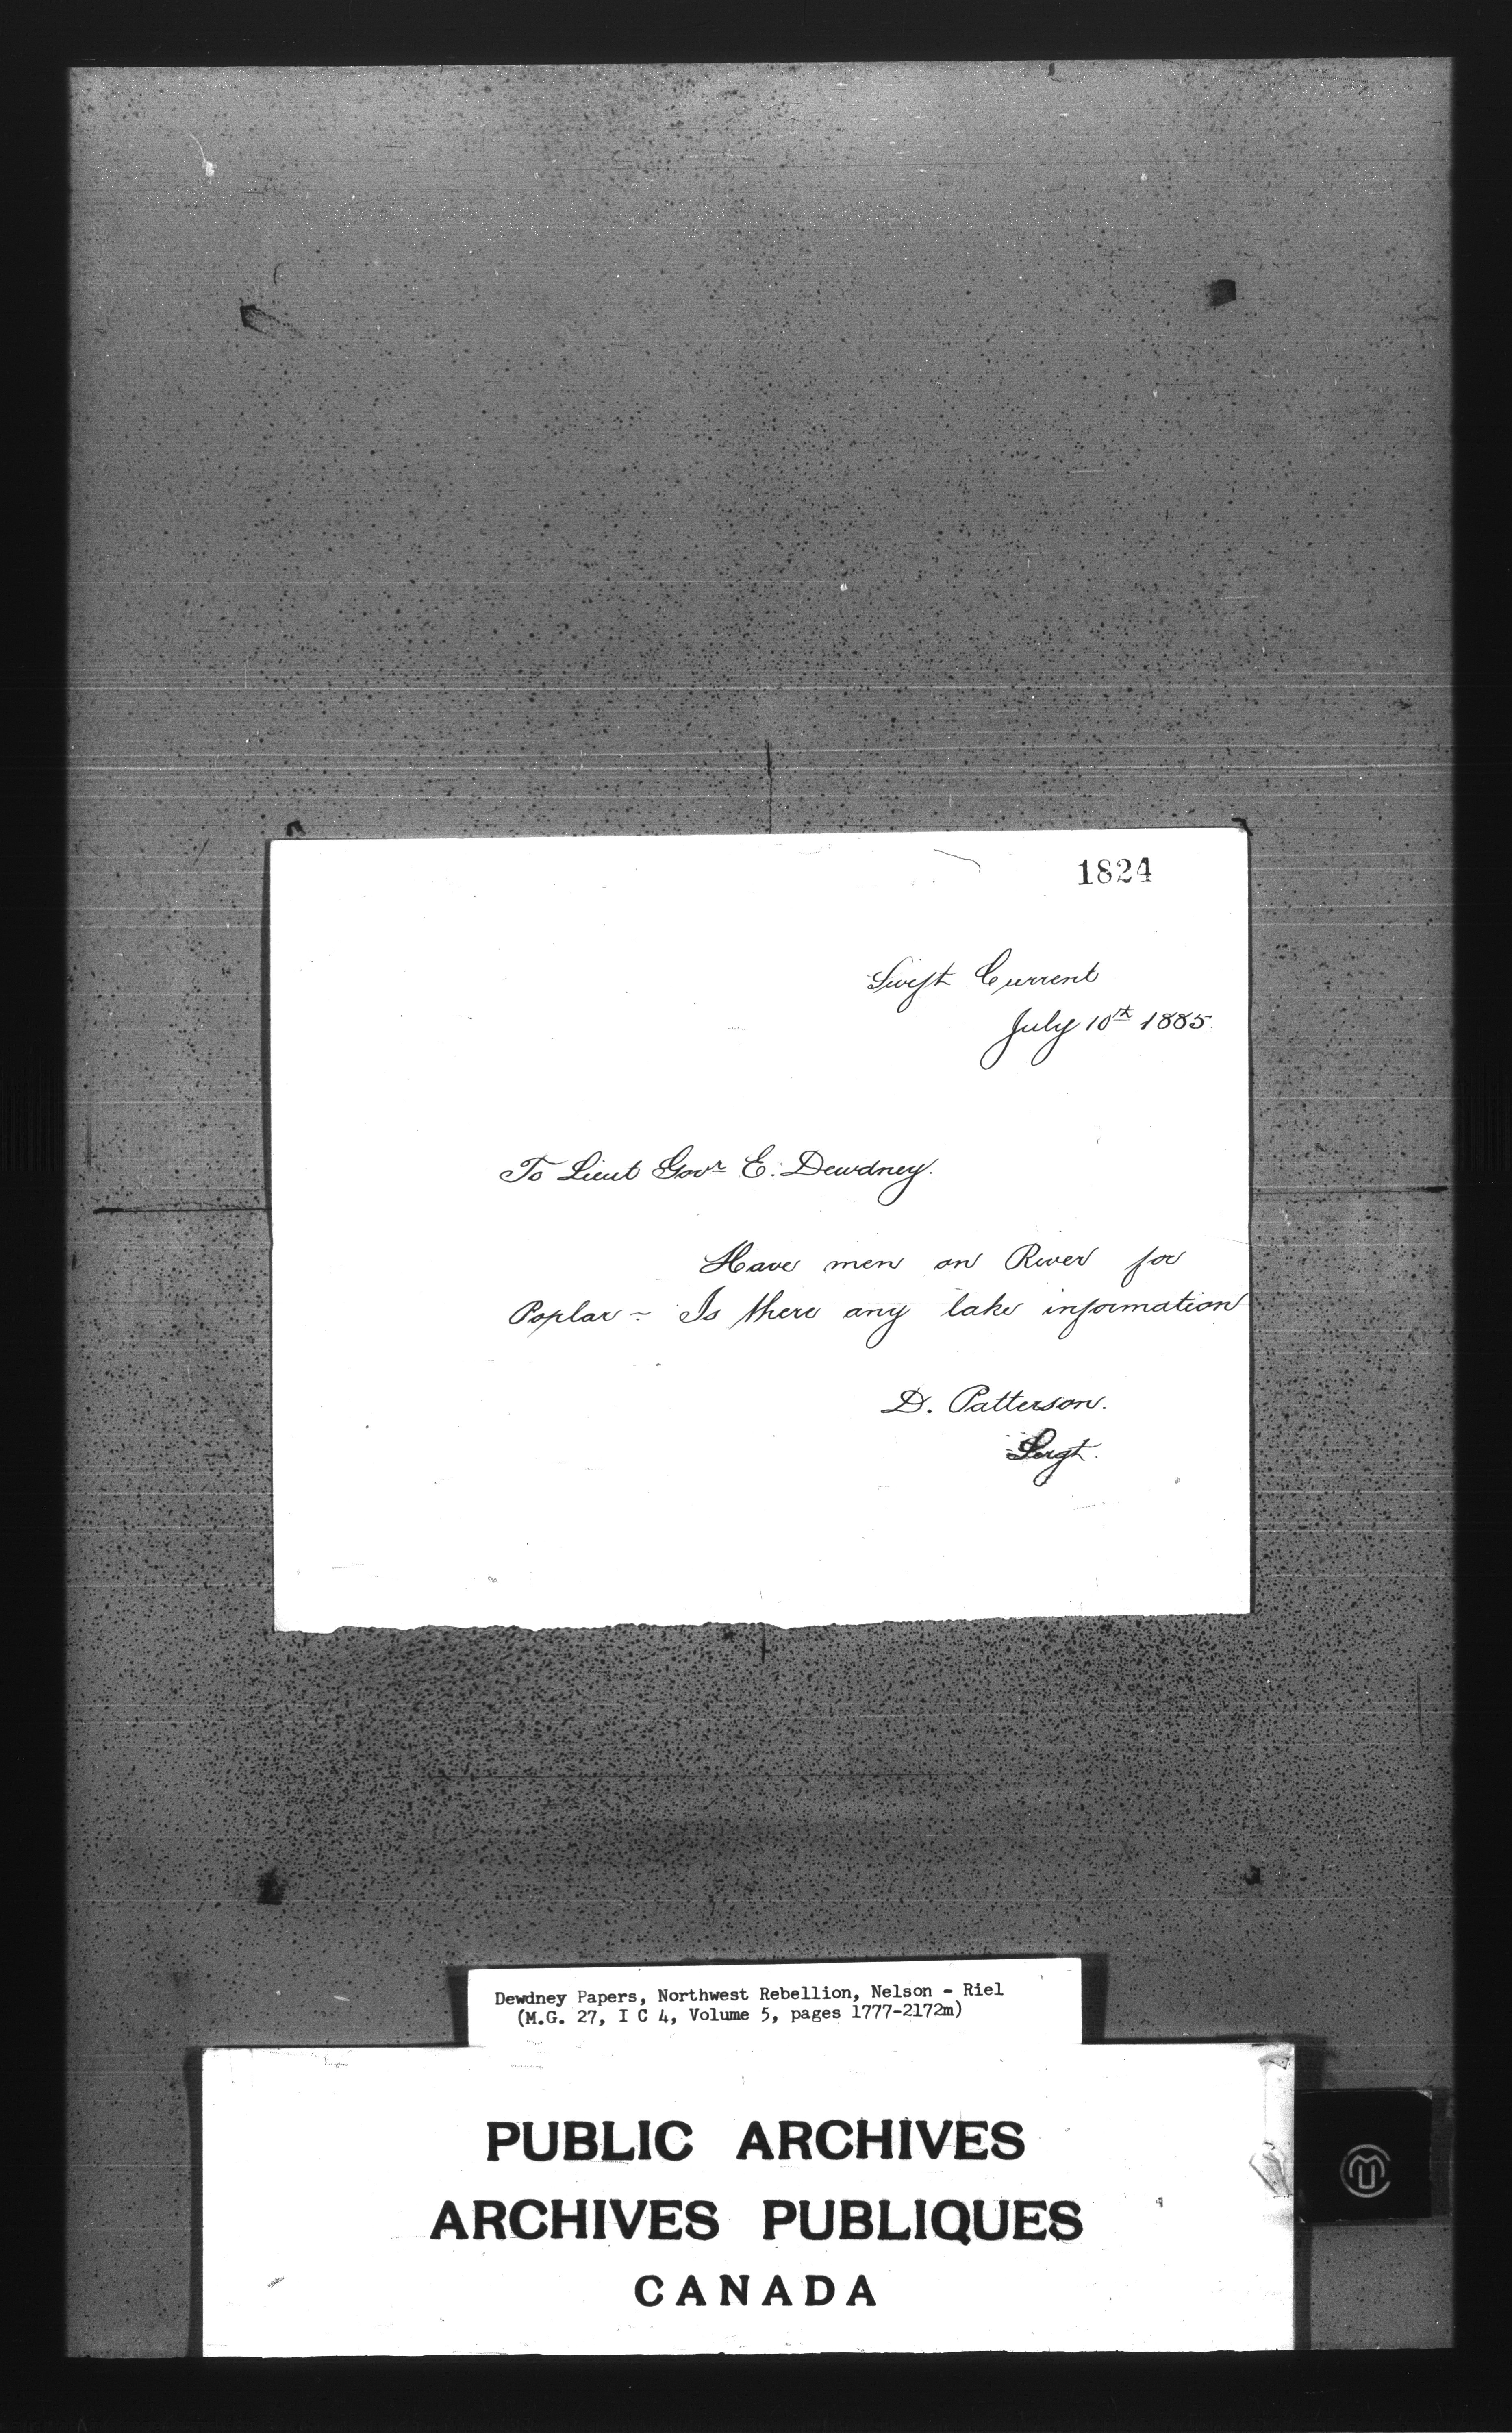 1824
Swift Current
July 10th 1885.
To Lieut Govr E. Dewdney.
Have men on River for
Poplar - Is there any late information
D. Patterson.
Sergt.
Dewdney Papers, Northwest Rebellion, Nelson - Riel
(M.G. 27, I C 4, Volume 5, pages 1777-2172m)
PUBLIC ARCHIVES
ARCHIVES PUBLIQUES
CANADA